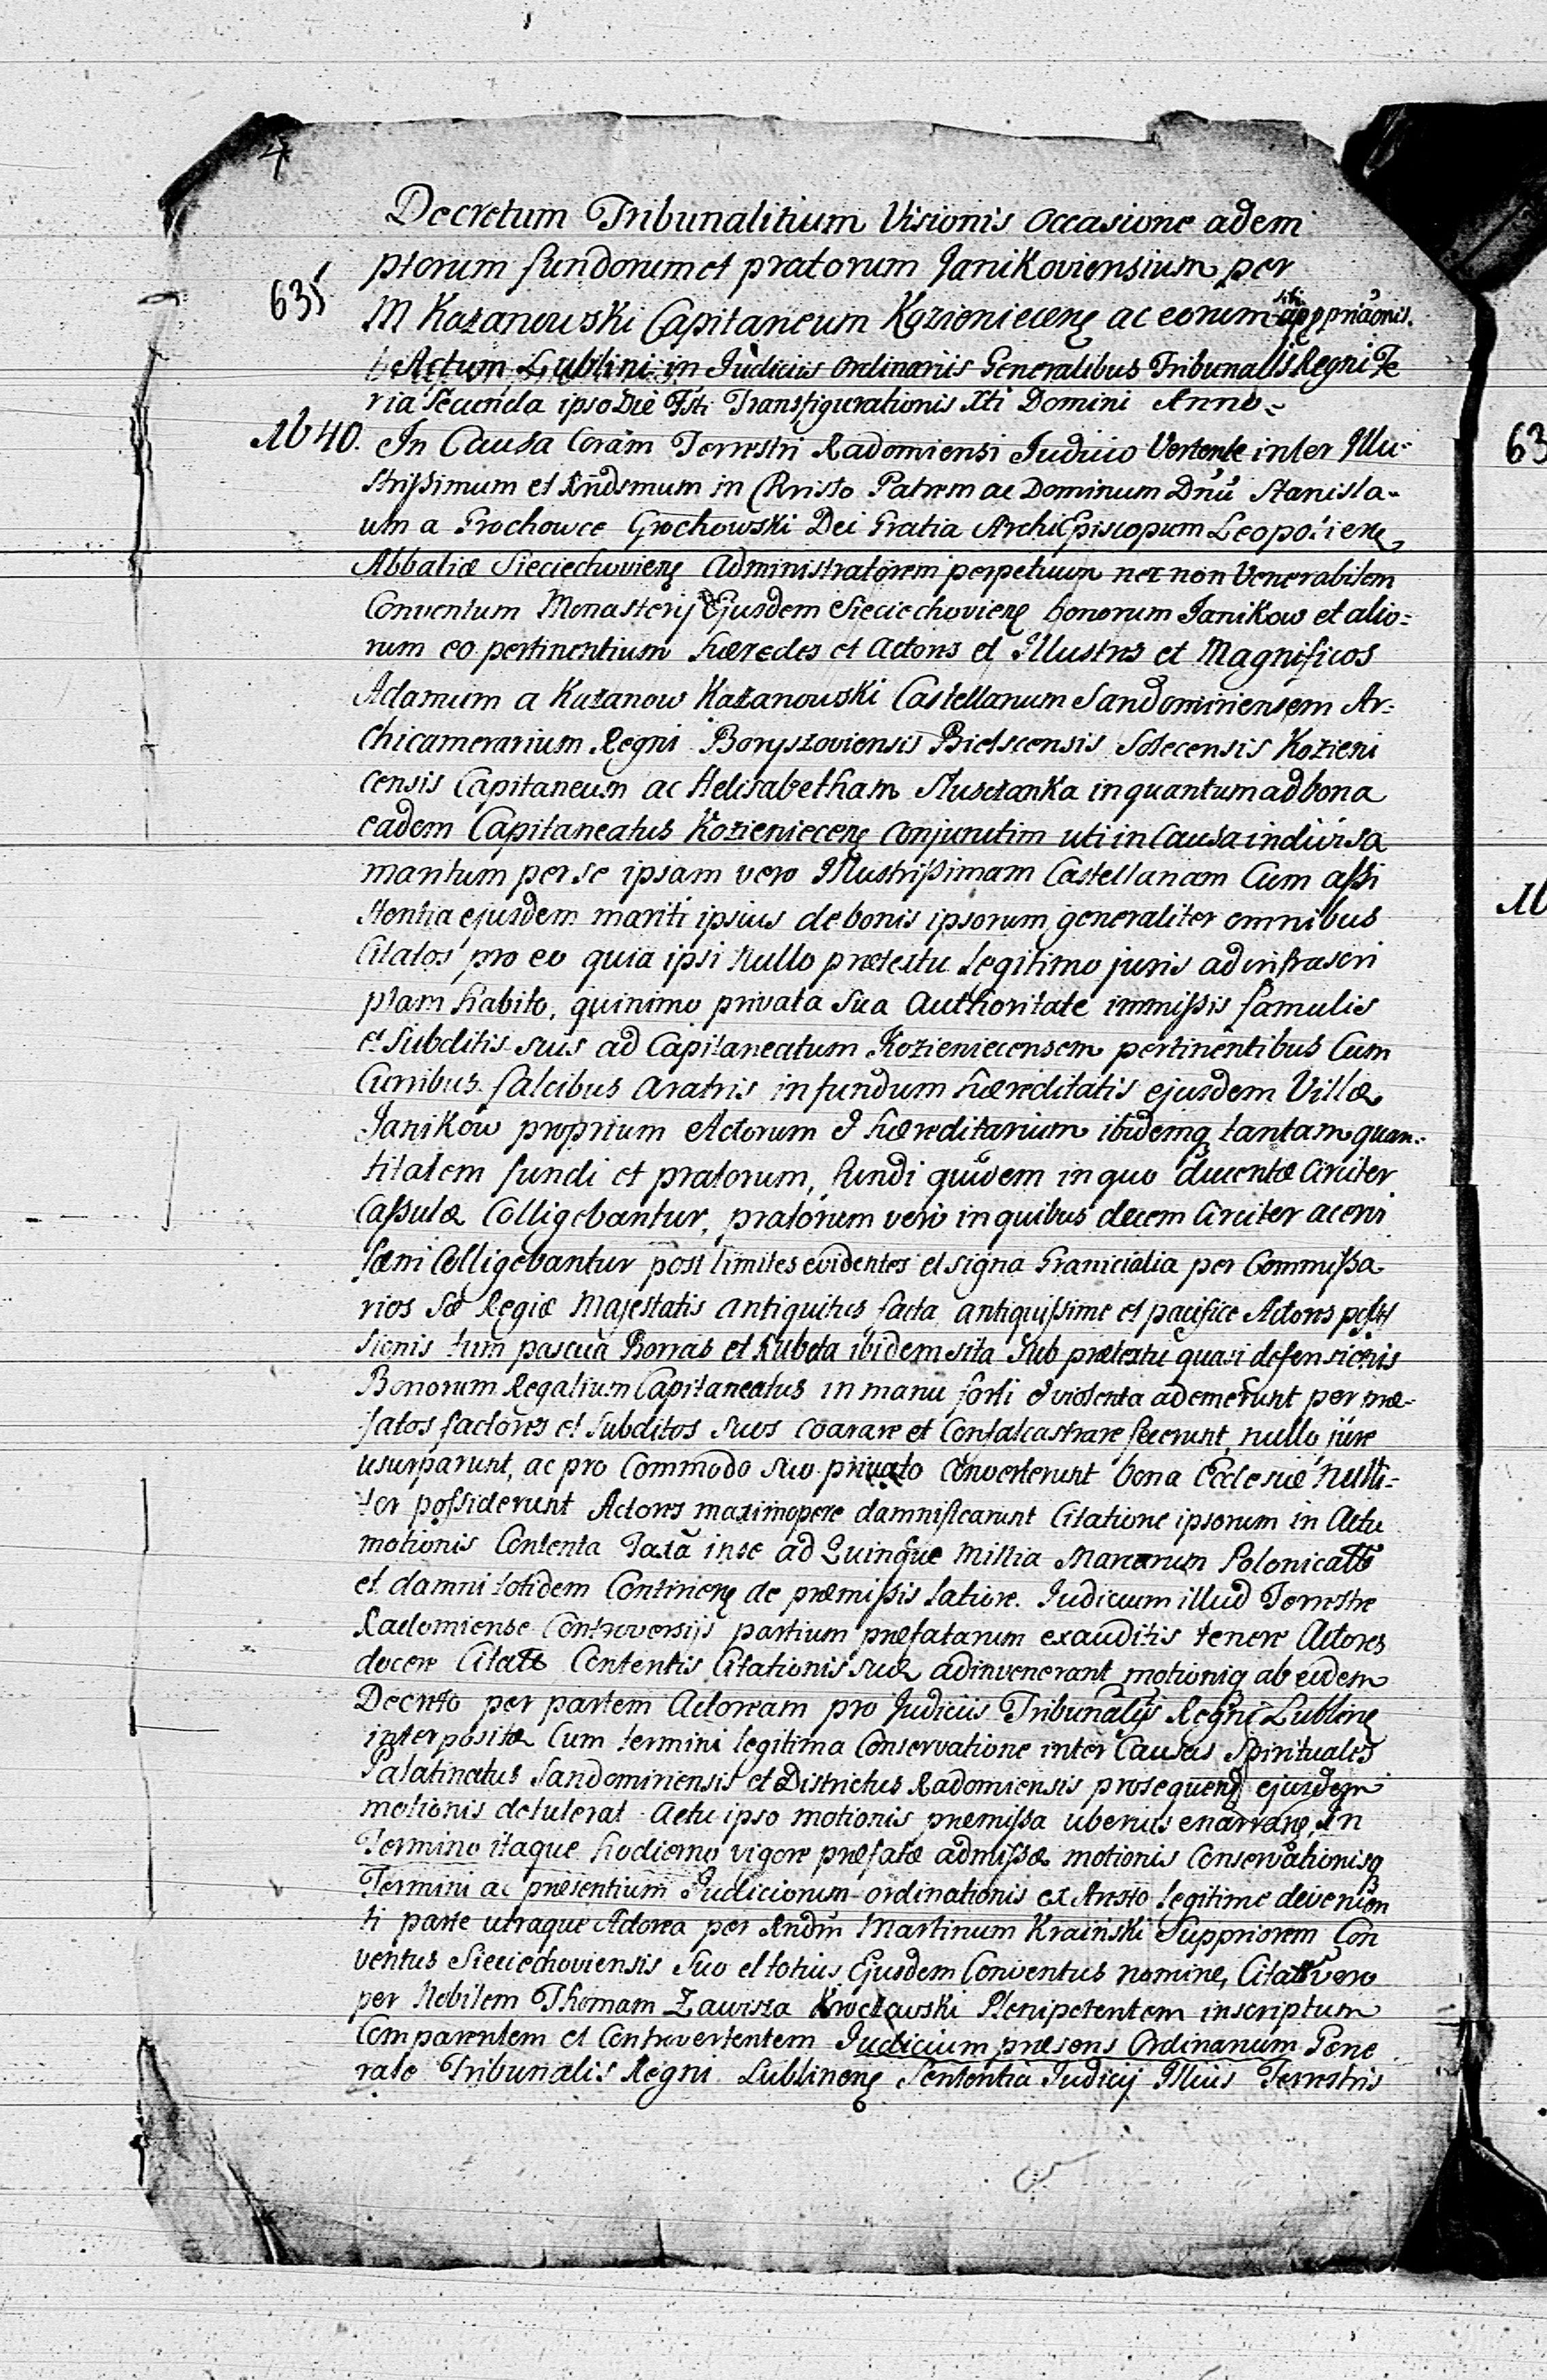 4
Decretum Tribunalitium Visionis Occasione adem
ptorum fundorum et pratorum Janikoviensium per
635
M Kazanowski Capitaneum Kozieniecenę ac eorum sibi apppriãonis.
Actum Lublini in Judiciis Ordinariis Generalibus Tribunalis Regni Fe
ria Secunda ipso Die Fsti Transfigurationis Xti Domini Anno
1640. In Causa Coram Terrestri Radomiensi Judicio Vertente inter Illu-
strissimum et Rñdsmum in Christo Patrem ac Dominum Dnũ Stanisla-
um a Grochowce Grochowski Dei Gratia ArchiEpiscopum Leopolienę
Abbatiæ Sieciechovienę Administratorem perpetuum nec non Venerabilem
Conventum Monasterij Ejusdem Sieciechovienę bonorum Janikow et alio=
rum eo pertinentium hæredes et Actores et Illustres et Magnificos
Adamum a Kazanow Kazanowski Castellanum Sandomiriensem Ar-
chicamerarium Regni Boryszoviensis Bielscensis Solecensis Kozieni
censis Capitaneum ac Helisabetham Slusczanka in quantum ad bona
eadem Capitaneatus Kozieniecenę conjunctim uti in Causa indivisa
maritum per se ipsam vero Illustrissimam Castellanam Cum assi
stentia ejusdem mariti ipsius de bonis ipsorum generaliter omnibus
Citatos pro eo quia ipsi nullo prætextu legitimo juris ad infrascri
ptam habito, quinimo privata sua Authoritate immissis famulis
et Subditis suis ad Capitaneatum Kozieniecensem pertinentibus Cum
Curribus falcibus aratris in fundum hæreditatis ejusdem Villæ
Janików proprium Actorum et hæreditarium ibidemq tantam quan-
titatem fundi et pratorum, fundi quidem in quo ducentæ circiter
Cassulæ Colligebantur, pratorum vero in quibus decem Circiter acervi
fæni Colligebantur post limites evidentes et signa Granicialia per Commissa
rios Sæ Regiæ Majestatis antiquitus facta antiquissime et pacifice Actores
sionis tum pascua Borras et Rubeta ibidem sita Sub prætextu quasi defensionis
Bonorum Regalium Capitaneatus in manu forti et violenta ademerunt per præ-
fatos factores et Subditos suos coarare et Confalcastrare fecerunt, nullo jure
usurparunt, ac pro Commodo suo privato converterunt bona Ecclesiæ
possiderunt Actores maximopere damnificarunt Citatione ipsorum in Actu
motionis Contenta Taxã in se ad Quinque Millia Marcarum Polonical
et damni totidem Continenę de præmissis latiore. Judicium illud Terrestre
Radomiense Controversijs partium præfatarum exauditis tenere Actores
docere Citatos Contentis Citationis suæ adinvenerant motioniq ab eodem
Decreto per partem Actoream pro Judiciis Tribunalis Regni Lublinę
interpositæ Cum termini legitima Conservatione inter Causas Spirituales
Palatinatus Sandomiriensis et Districtus Radomiensis prosequendę ejusdem
motionis detulerat Actu ipso motionis præmissa uberius enarranę, In
Termino itaque hodierno vigore præfatæ admissæ motionis Conservationisq
Termini ac præsentium Judiciorum ordinationis ex Aresto legitime devenien
ti parte utraque Actorea per Rndm Martinum Krainski Suppriorem Con
ventus Sieciechoviensis suo et totius Ejusdem Conventus nomine, Citatos vero
per Nobilem Thomam Zawisza Plenipotentem inscriptum
Comparentem et Controvertentem Judicium præsens Ordinarium Gene
rale Tribunalis Regni Lublinenę Sententia Judicij Illius Terrestris
63